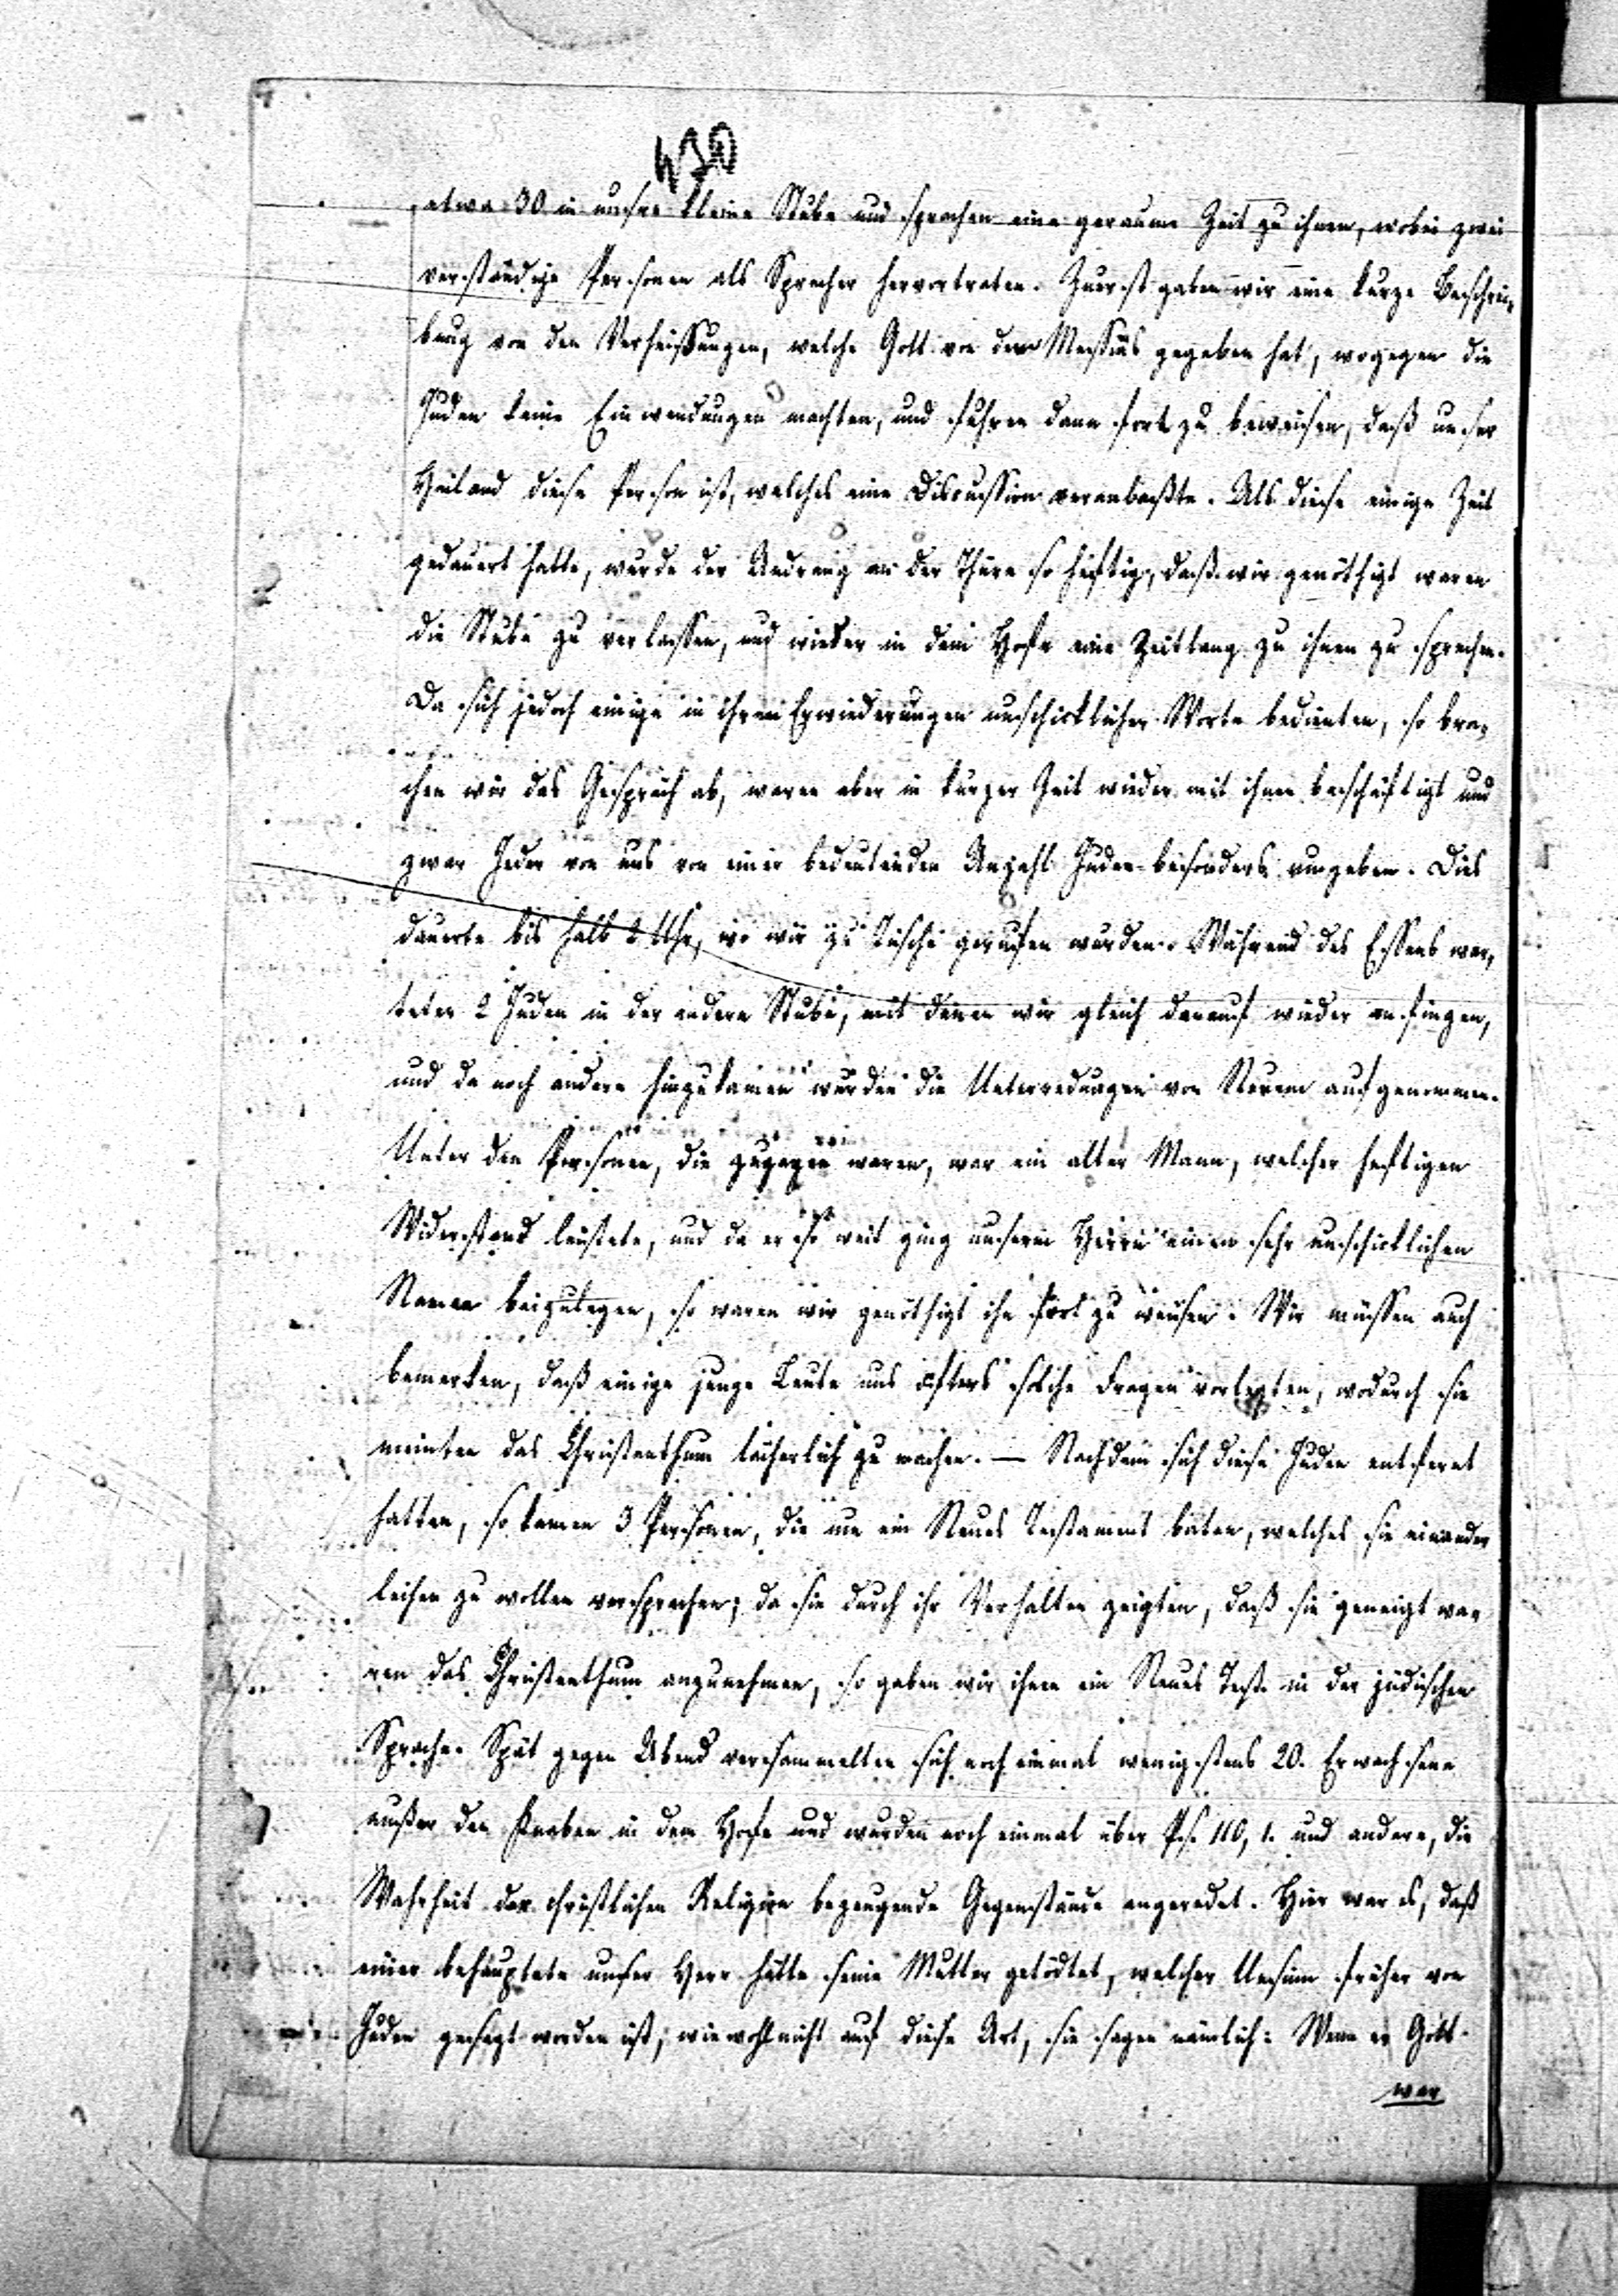 430
etwa 30 in unsre kleine Stube und sprachen eine geraume Zeit zu ihnen, wobei zwei
verständige Personen als Sprecher hervortraten. Zuerst gaben wir eine kurze Beschrei-
bung von den Verheißungen, welche Gott von dem Messias gegeben hat, wogegen die
Juden keine Einwendungen machten, und fuhren dann fort zu beweisen, daß unser
Heiland diese Person ist, welches eine Discussion veranlaßte. Als diese einige Zeit
gedauert hatte, wurde der Andrang an der Thüre so heftig, daß wir genöthigt waren
die Stube zu verlassen, und wieder in dem Hofe eine Zeitlang zu ihnen zu sprechen.
Da sich jedoch einige in ihren Erwiederungen unschicklicher Worte bedienten, so bra-
chen wir das Gespräch ab, waren aber in kurzer Zeit wieder mit ihnen beschäftigt und
zwar Jeder von uns von einer bedeutenden Anzahl Juden besonders umgeben. Dies
dauerte bis halb 2 Uhr, wo wir zu Tische gerufen wurden. Während des Essens war-
teten 2 Juden in der andern Stube, mit denen wir gleich darauf wieder anfingen,
und da noch andere hinzukamen wurden die Unterredungen von Neuem aufgenommen.
Unter den Personen, die zugegen waren, war ein alter Mann, welcher heftigen
Widerstand leistete, und da er so weit ging unserm Herrn einen sehr unschicklichen
Namen beizulegen, so waren wir genöthigt ihn fort zu weisen. Wir müssen auch
bemerken, daß einige junge Leute uns öfters solche Fragen vorlegten, wodurch sie
meinten das Christenthum lächerlich zu machen. — Nachdem sich diese Juden entfernt
hatten, so kamen 3 Personen, die um ein Neues Testament baten, welches sie einander
leihen zu wollen versprachen; da sie durch ihr Verhalten zeigten, daß sie geneigt wa-
ren das Christenthum anzunehmen, so gaben wir ihnen ein Neues Test. in der jüdischen
Sprache. Spät gegen Abend versammelten sich noch einmal wenigstens 20. Erwachsene
außer den Knaben in dem Hofe und wurden noch einmal über Ps. 110, 1. und andere, die
Wahrheit der christlichen Religion bezeugende Gegenstände angeredet. Hier war es, daß
einer behauptete unser Herr hätte seine Mutter getödtet, welcher Unsinn früher von
Juden gesagt worden ist, wiewohl nicht auf diese Art, sie sagen nämlich: Wenn er Gott
war